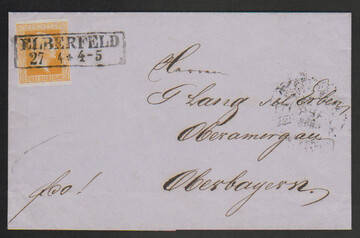 ELBERFELD
27 4 * 4-5
Herren
G Lang sel Erben
Oberamergau
Oberbayern.
fco!